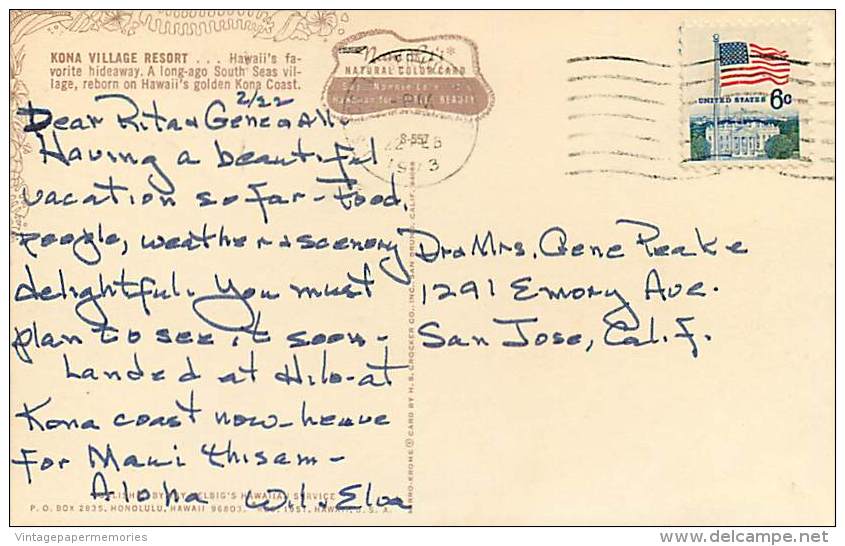 KONA VILLAGE RESORT . . . Hawaii's fa-
vorite hideaway. A long-ago South Seas vil-
lage, reborn on Hawaii's golden Kona Coast.
NATURAL COLOR CARD
BEAUTY
PM
S-557
1973
UNITED STATES 6c
2/22
Dear Rita & Gene & All
Having a beautiful
vacation so far - Food,
people, weather & scenery
delightful. You must
plan to see it soon -
Landed at Hilo - at
Kona coast now - leave
for Maui this am -
Aloha W.L. & Elva
Dr & Mrs. Gene Peake
1291 Emory Ave.
San Jose, Calif.
MIRRO-KROME ® CARD BY H. S. CROCKER CO., INC., SAN BRUNO, CALIF.
HAWAIIAN SERVICE
P. O. BOX 2835, HONOLULU, HAWAII 96803. HAWAII, U. S. A.
Vintagepapermemories
delcampe.net